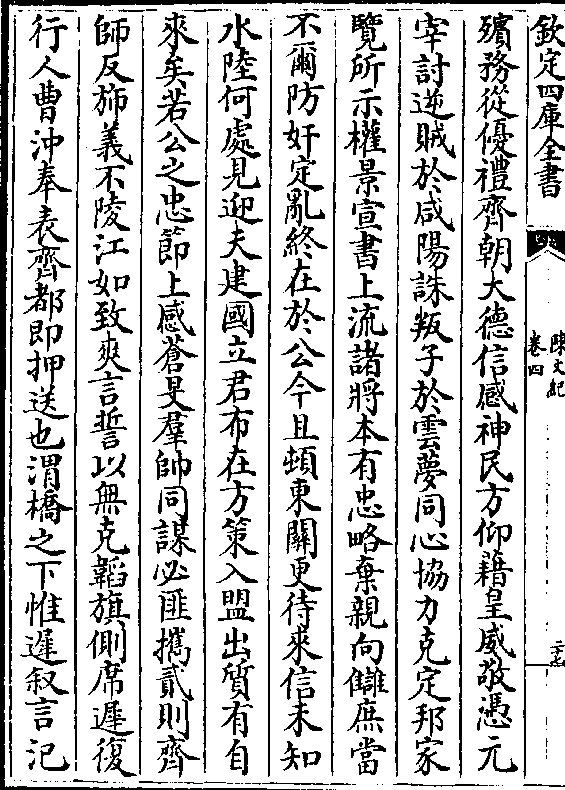 欽定四庫全書
陳文紀
卷四
二十七
殯務從優禮齊朝大德信感神民方仰藉皇威敬憑元
宰討逆賊於咸陽誅叛子於雲夢同心協力克定邦家
覽所示權景宣書上流諸將本有忠略棄親向讎庶當
不爾防奸定亂終在於公今且頓東關更待來信未知
水陸何處見迎夫建國立君布在方策入盟出質有自
來矣若公之忠節上感蒼旻羣帥同謀必匪攜貳則齊
師反斾義不陵江如致爽言誓以無克韜旗側席遲復
行人曹沖奉表齊都即押送也渭橋之下惟遲叙言汜